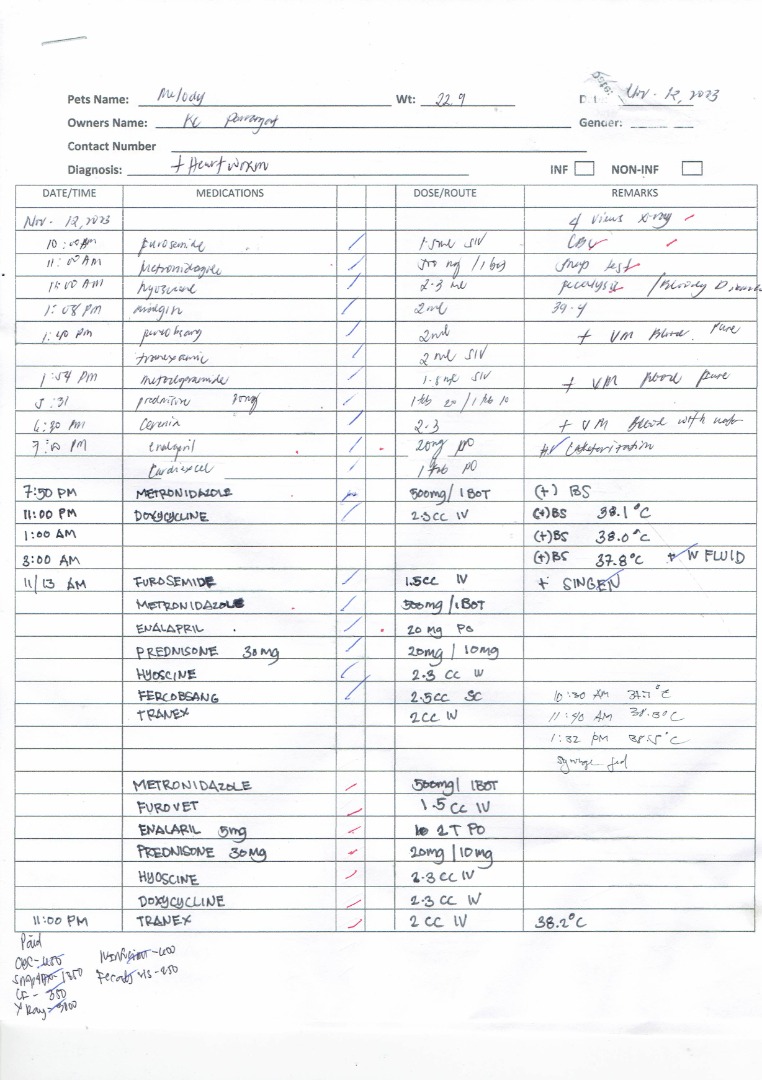 Pets Name: Melody Wt: 22.9 Nov. 12, 2023
Owners Name: KC Gender:
Contact Number
Diagnosis: + Heartworm INF NON-INF
DATE/TIME MEDICATIONS DOSE/ROUTE REMARKS
Nov. 12, 2023 4 views x-ray
10:00 AM furosemide 1.5ml SIV CBC
11:00 AM Metronidazole 500 mg / 1 bot snap test
hyoscine 2.3 ml fecalysis / Bloody
1:08 PM 2ml 39.4
1:40 PM 2ml + VM Blood Pure
tranexamic 2ml SIV
1:54 PM metoclopramide 1.5ml SIV + VM Blood Pure
5:31 prednisone 30mg 1 tab 20 / 1 tab 10
6:30 PM Cerenia 2.3 + VM Blood with
enalapril 20mg PO
1 tab PO
7:50 PM METRONIDAZOLE 500mg/ 1 BOT (+) BS
11:00 PM DOXYCYCLINE 2.3cc IV (+)BS 38.1°C
1:00 AM (+)BS 38.0°C
3:00 AM (+)BS 37.8°C + IV FLUID
11/13 AM FUROSEMIDE 1.5cc IV +
METRONIDAZOLE 500mg / 1 BOT
ENALAPRIL 20 mg PO
PREDNISONE 30mg 20mg / 10mg
HYOSCINE 2.3 cc IV
FERCOBSANG 2.5cc SC 10:30 AM
TRANEX 2cc IV 11:40 AM 38.3°C
1:32 PM
syringe fed
METRONIDAZOLE 500mg/ 1 BOT
FUROVET 1.5 cc IV
ENALARIL 5mg 2 T PO
PREDNISONE 30mg 20mg / 10mg
HYOSCINE 2.3 cc IV
DOXYCYCLINE 2.3 cc IV
11:00 PM TRANEX 2 CC IV 38.2°C
Paid
CBC-
1350
350
X Ray-